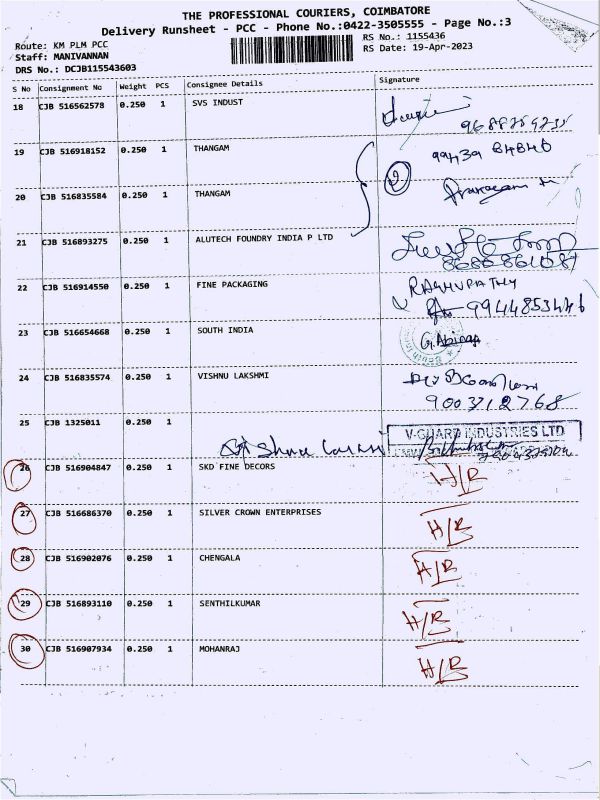 THE PROFESSIONAL COURIERS, COIMBATORE
Delivery Runsheet - PCC - Phone No.:0422-3505555 - Page No.:3
Route: KM PLM PCC
RS No.: 1155436
Staff: MANIVANNAN
RS Date: 19-Apr-2023
DRS No.: DCJB115543603
S No Consignment No Weight PCS Consignee Details Signature
18 CJB 516562578 0.250 1 SVS INDUST
19 CJB 516918152 0.250 1 THANGAM
20 CJB 516835584 0.250 1 THANGAM
2
21 CJB 516893275 0.250 1 ALUTECH FOUNDRY INDIA P LTD
22 CJB 516914550 0.250 1 FINE PACKAGING RAGHUPATHY
9944853446
23 CJB 516654668 0.250 1 SOUTH INDIA
24 CJB 516835574 0.250 1 VISHNU LAKSHMI
9003712768
25 CJB 1325011 0.250 1
V-GUARD INDUSTRIES LTD
26 CJB 516904847 0.250 1 SKD FINE DECORS H/R
27 CJB 516686370 0.250 1 SILVER CROWN ENTERPRISES H/R
28 CJB 516902076 0.250 1 CHENGALA H/R
29 CJB 516893110 0.250 1 SENTHILKUMAR H/R
30 CJB 516907934 0.250 1 MOHANRAJ H/R